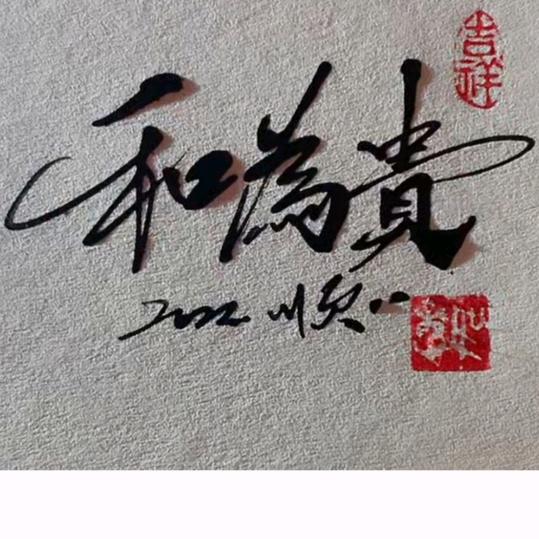 吉祥
和為貴
2022 顺心